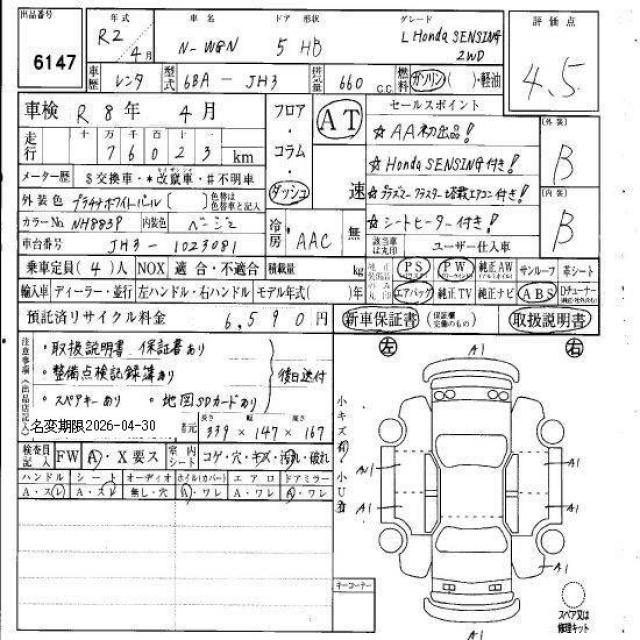 出品番号 年式 車名 ドア 形状 グレード 評価点
6147 R2 4月 N-WGN 5 HB L Honda SENSING 2WD
4.5
車歴 レンタ 型式 6BA - JH3 排気量 660 C.C 燃料 ガソリン ( )・軽油
車検 R 8年 4月 フロア・コラム・ダッシュ AT 速
セールスポイント
☆ AA初出品!
[外装] B
走行 十万千百十一
76023 km
☆ Honda SENSING付き!
メーター歴 $交換車・*改竄車・#不明車
☆ プラズマクラスター搭載エアコン付き!
[内装] B
外装色 プラチナホワイトパール ( ) 色替は色替車と記入
☆ シートヒーター付き!
カラーNo NH883P 内装色 ベージュ 冷房 AAC 無
該当車は丸印 ユーザー仕入車
車台番号 JH3-1023081
乗車定員(4)人 NOX 適合・不適合 積載量 kg
純正装備品のみ丸印 PS PW 純正AW サンルーフ 革シート
輸入車 ディーラー・並行 左ハンドル・右ハンドル モデル年式( )年
エアバッグ 純正TV 純正ナビ ABS Dチューナー
預託済リサイクル料金 6,590円 新車保証書 (保証欄完備のもの) 取扱説明書
注意事項(出品店記入)
・取扱説明書 保証書あり
・整備点検記録簿あり
・スペアキーあり ・地図SDカードあり
後日送付
名変期限2026-04-30
長さ 幅 高さ
339 × 147 × 167
検査員記入 FW A・X要ス 室内シート コゲ・穴・キズ・汚れ・破れ
ハンドル シート オーディオ ホイル(カバー) エアロ ドアミラー
A・スレ A・スレ 無し・穴 A・ワレ A・ワレ A・ワレ
左 A1 右
小キズ有 小U有
A1 A1
A1 A1
A1
A1
キーコーナー
スペア又は修理キット